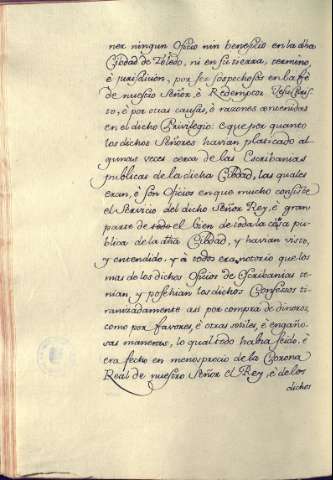 ner ningun Oficio nin beneficio en la dha
Ciudad de Toledo, ni en su tierra, termino,
é jurisdicion, por ser sospechosos en la fé
de nuestro Señor, é Redemptor Jesu Chris-
to, é por otras causas, é razones contenidas
en el dicho Privilegio: é que por quanto
los dichos Señores havian platicado al-
gunas veces cerca de las Escribanias
publicas de la dicha Ciudad, las quales
eran, é son Oficios en que mucho consiste
el servicio del dicho Señor Rey, é gran
parte de todo el bien de toda la cosa pu-
blica de la dha Ciudad, y havian visto,
y entendido, y à todos era notorio que los
mas de los dichos Oficios de Escribanias te-
nian, y posehian los dichos Confessos ti-
ranizadamente asi por compra de dineros,
como por favores, é otras sotiles, é engaño-
sas maneras, lo qual todo habia seido, é
era fecho en menosprecio de la Corona
Real de nuestro Señor el Rey, é de los
dichos